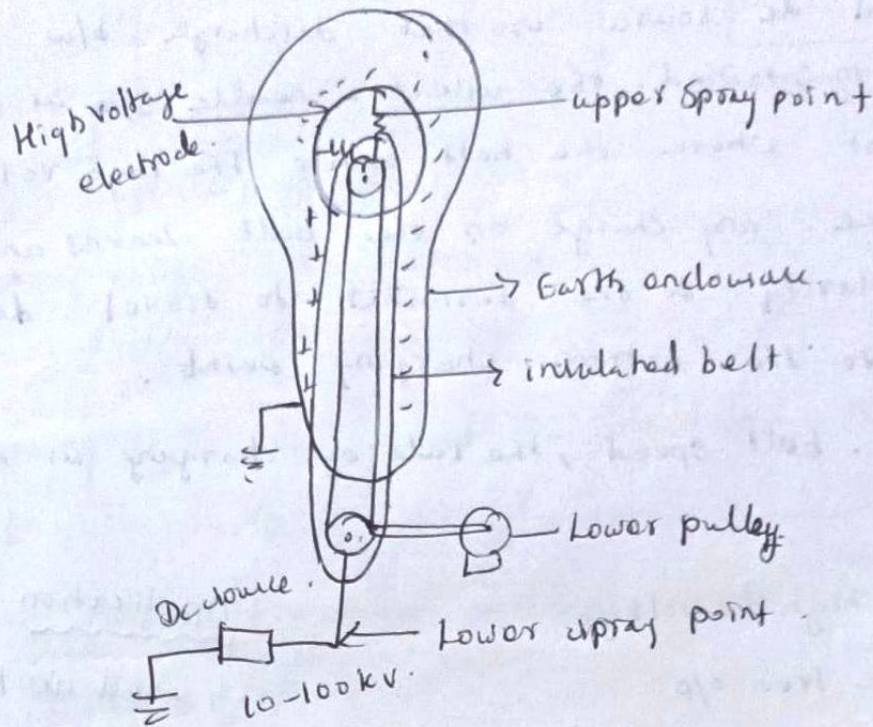 High voltage
electrode.
upper Spray point
Earth enclosure.
insulated belt
Lower pulley
Dc source.
Lower spray point.
10-100kV.